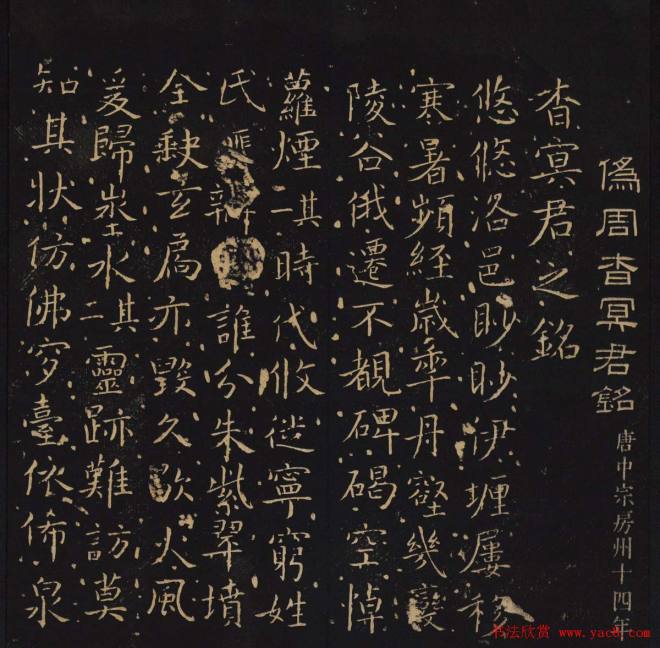 僞周杳冥君銘 唐中宗房州十四年
杳冥君之銘
悠悠洛邑眇眇伊瀍屢移
寒暑頻經歲年丹壑幾變
陵谷俄遷不覩碑碣空悼
蘿煙其一時代攸徙寧窮姓
氏匪辯誰分朱紫翠墳
全缺玄扃亦毀久歇火風
爰歸水其二靈跡難訪莫
知其狀仿佛穸臺依俙泉
书法欣赏 www.yac8.com